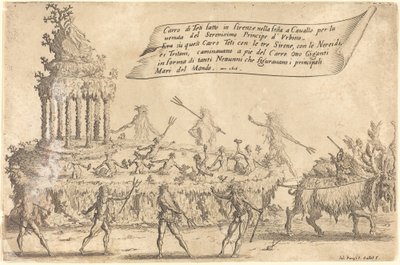 Carro di Teti fatto in firenze nella festa a Cauallo per la
uenuta del Serenissimo Principe d' Vrbino.
Era su quest Carro Teti con le tre Sirene, con le Nereidi,
et Tritoni, caminauano a pie del Carro Otto Giganti
in forma di tanti Nettunni che figurauano i principali
Mari del Mondo.